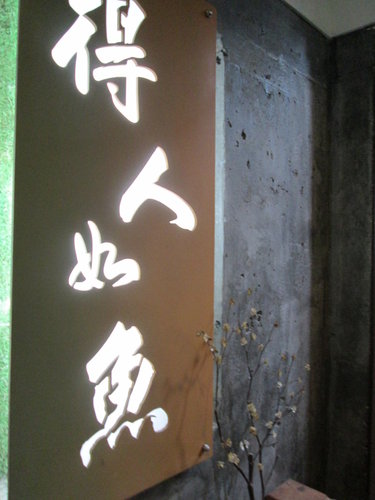 得人如魚